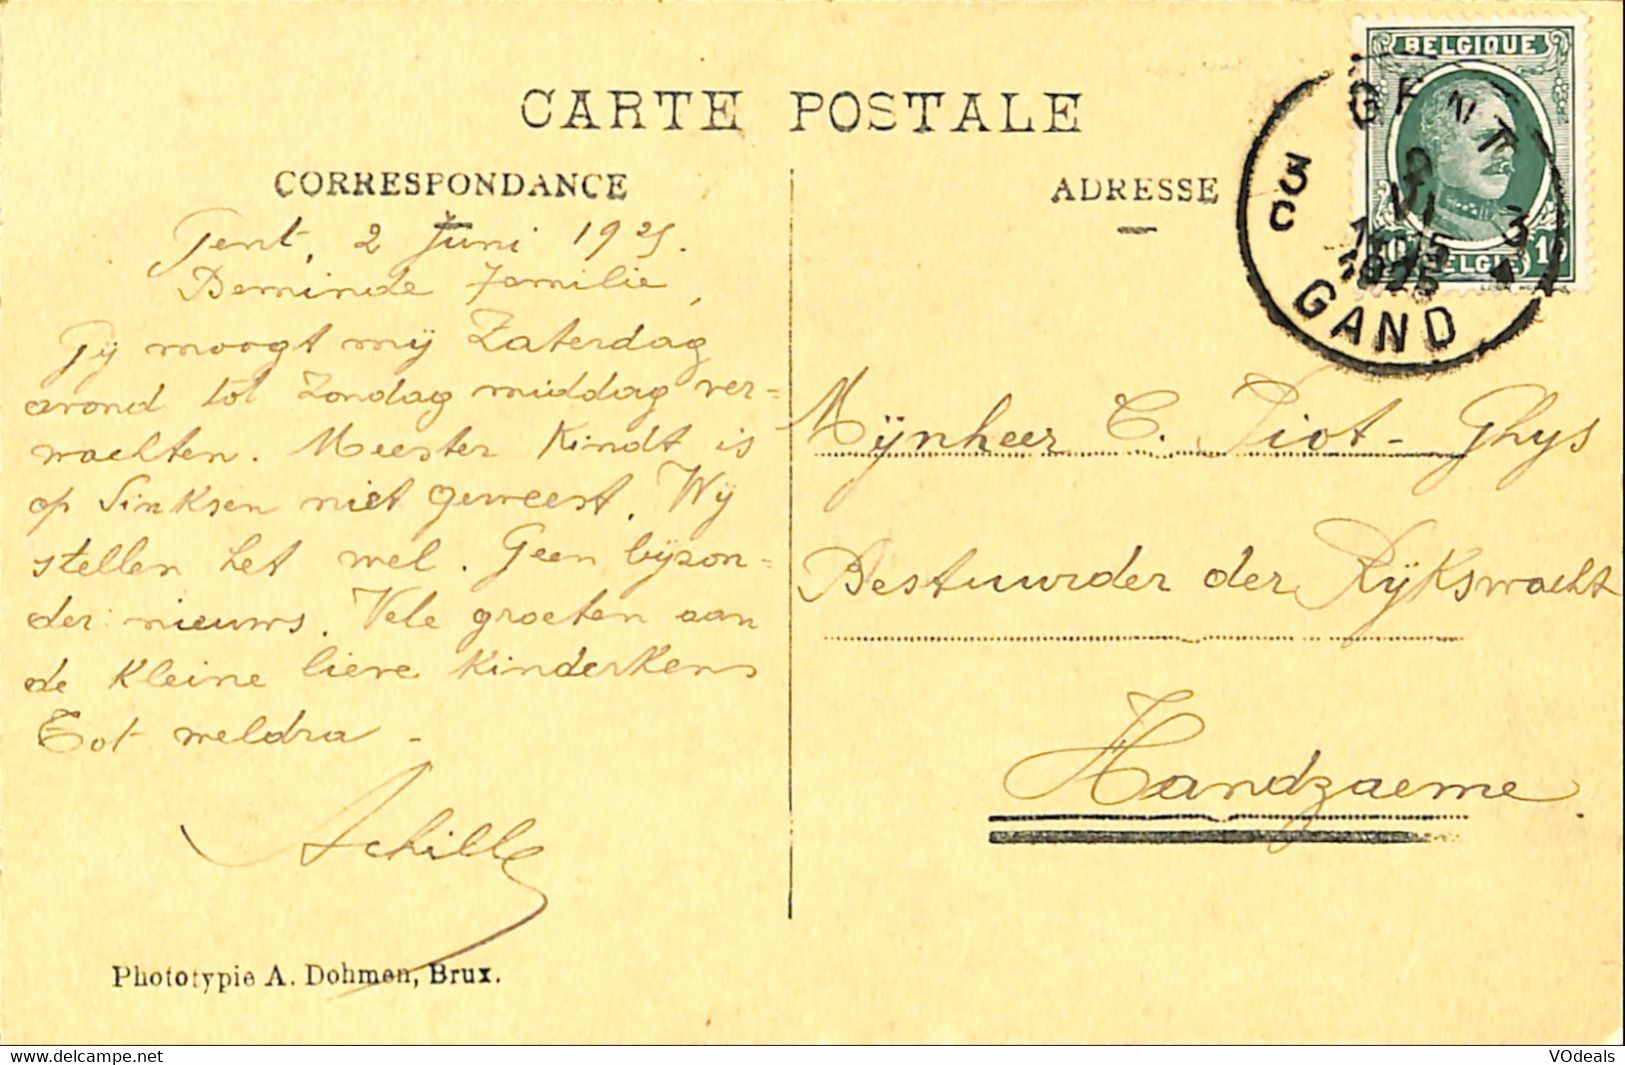 CARTE POSTALE
CORRESPONDANCE
Gent, 2 Juni 1925.
Beminde Familie,
Gij moogt mij Zaterdag
avond tot Zondag middag ver=
wachten. Meester Kindt is
op Sinksen niet geweest. Wij
stellen het wel. Geen bijzon=
der nieuws. Vele groeten aan
de kleine lieve kinderkens
Tot weldra -
Achille
Phototypie A. Dohmen, Brux.
ADRESSE
BELGIQUE
BELGIE
GENT
3
VI
1925
3C
GAND
Mijnheer C. Piot - Ghys
Bestuurder der Rijkswacht
Handzaeme.
www.delcampe.net
VOdeals